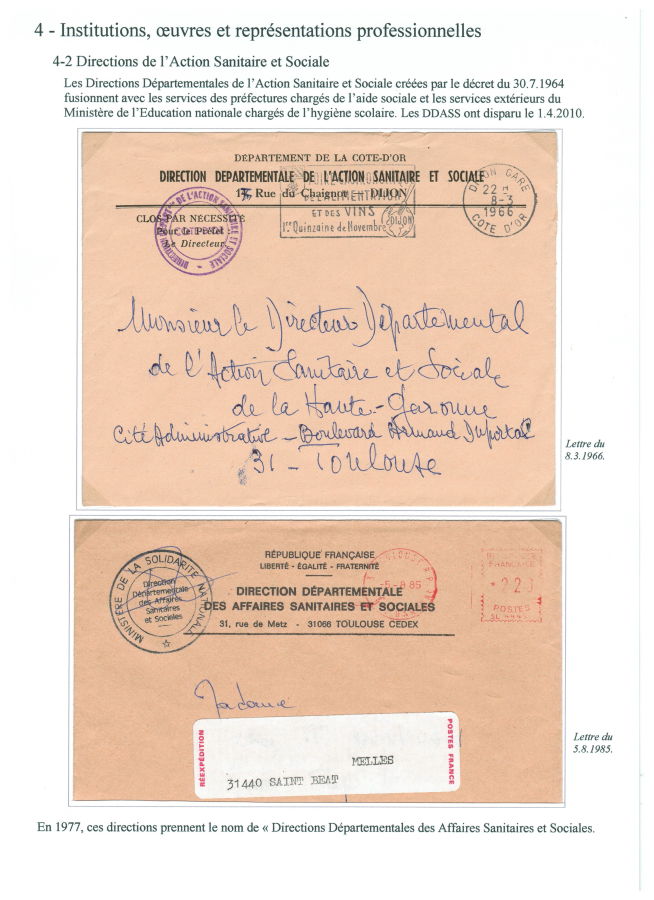 4 - Institutions, œuvres et représentations professionnelles
4-2 Directions de l'Action Sanitaire et Sociale
Les Directions Départementales de l'Action Sanitaire et Sociale créées par le décret du 30.7.1964
fusionnent avec les services des préfectures chargés de l'aide sociale et les services extérieurs du
Ministère de l'Education nationale chargés de l'hygiène scolaire. Les DDASS ont disparu le 1.4.2010.
DÉPARTEMENT DE LA COTE-D'OR
DIRECTION DEPARTEMENTALE DE L'ACTION SANITAIRE ET SOCIALE
Rue du Chaignot — DIJON
CLOS PAR NÉCESSITÉ
Pour le Préfet
Le Directeur
ET DES VINS
1re Quinzaine de Novembre
DIJON
DIJON GARE
22 H
8-3
1966
COTE D'OR
Monsieur le Directeur Départemental
de l'Action Sanitaire et Sociale
de la Haute-Garonne
Cité Administrative - Boulevard Armand Duportal
31 - Toulouse
Lettre du
8.3.1966.
MINISTÈRE DE LA SOLIDARITÉ NATIONALE
Direction
Départementale
des Affaires
Sanitaires
et Sociales
RÉPUBLIQUE FRANÇAISE
LIBERTÉ - ÉGALITÉ - FRATERNITÉ
DIRECTION DÉPARTEMENTALE
DES AFFAIRES SANITAIRES ET SOCIALES
31, rue de Metz - 31066 TOULOUSE CEDEX
-5.-8 85
FRANÇAISE
POSTES
Madame
RÉEXPÉDITION
MELLES
31440 SAINT BEAT
POSTES FRANCE
Lettre du
5.8.1985.
En 1977, ces directions prennent le nom de « Directions Départementales des Affaires Sanitaires et Sociales.